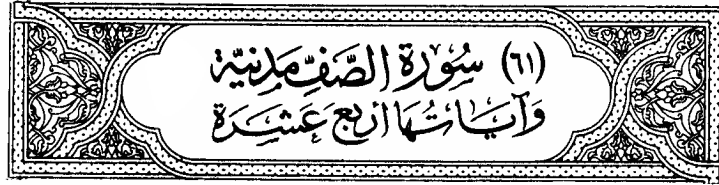 (٦١) سُورَة الصَّفِّ مَدَنِيَّة
وَآيَاتُهَا أَرْبَعَ عَشَرَةَ